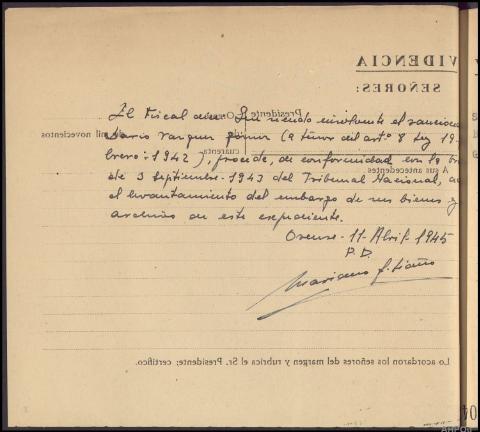 VIDENCIA
SEÑORES:
Presidente
mil novecientos
cuarenta
A sus antecedentes
El Fiscal dice: Que siendo insolvente el sanciona
Dario Vazquez (a tenor del artº 8 Ley 19
brero-1942), procede, de conformidad con la
de 3 Septiembre-1943 del Tribunal Nacional,
el levantamiento del embargo de sus bienes y
archivo de este expediente.
Orense-11-Abril-1945
P.D.
Mariano
Lo acordaron los señores del margen y rubrica el Sr. Presidente; certifico.